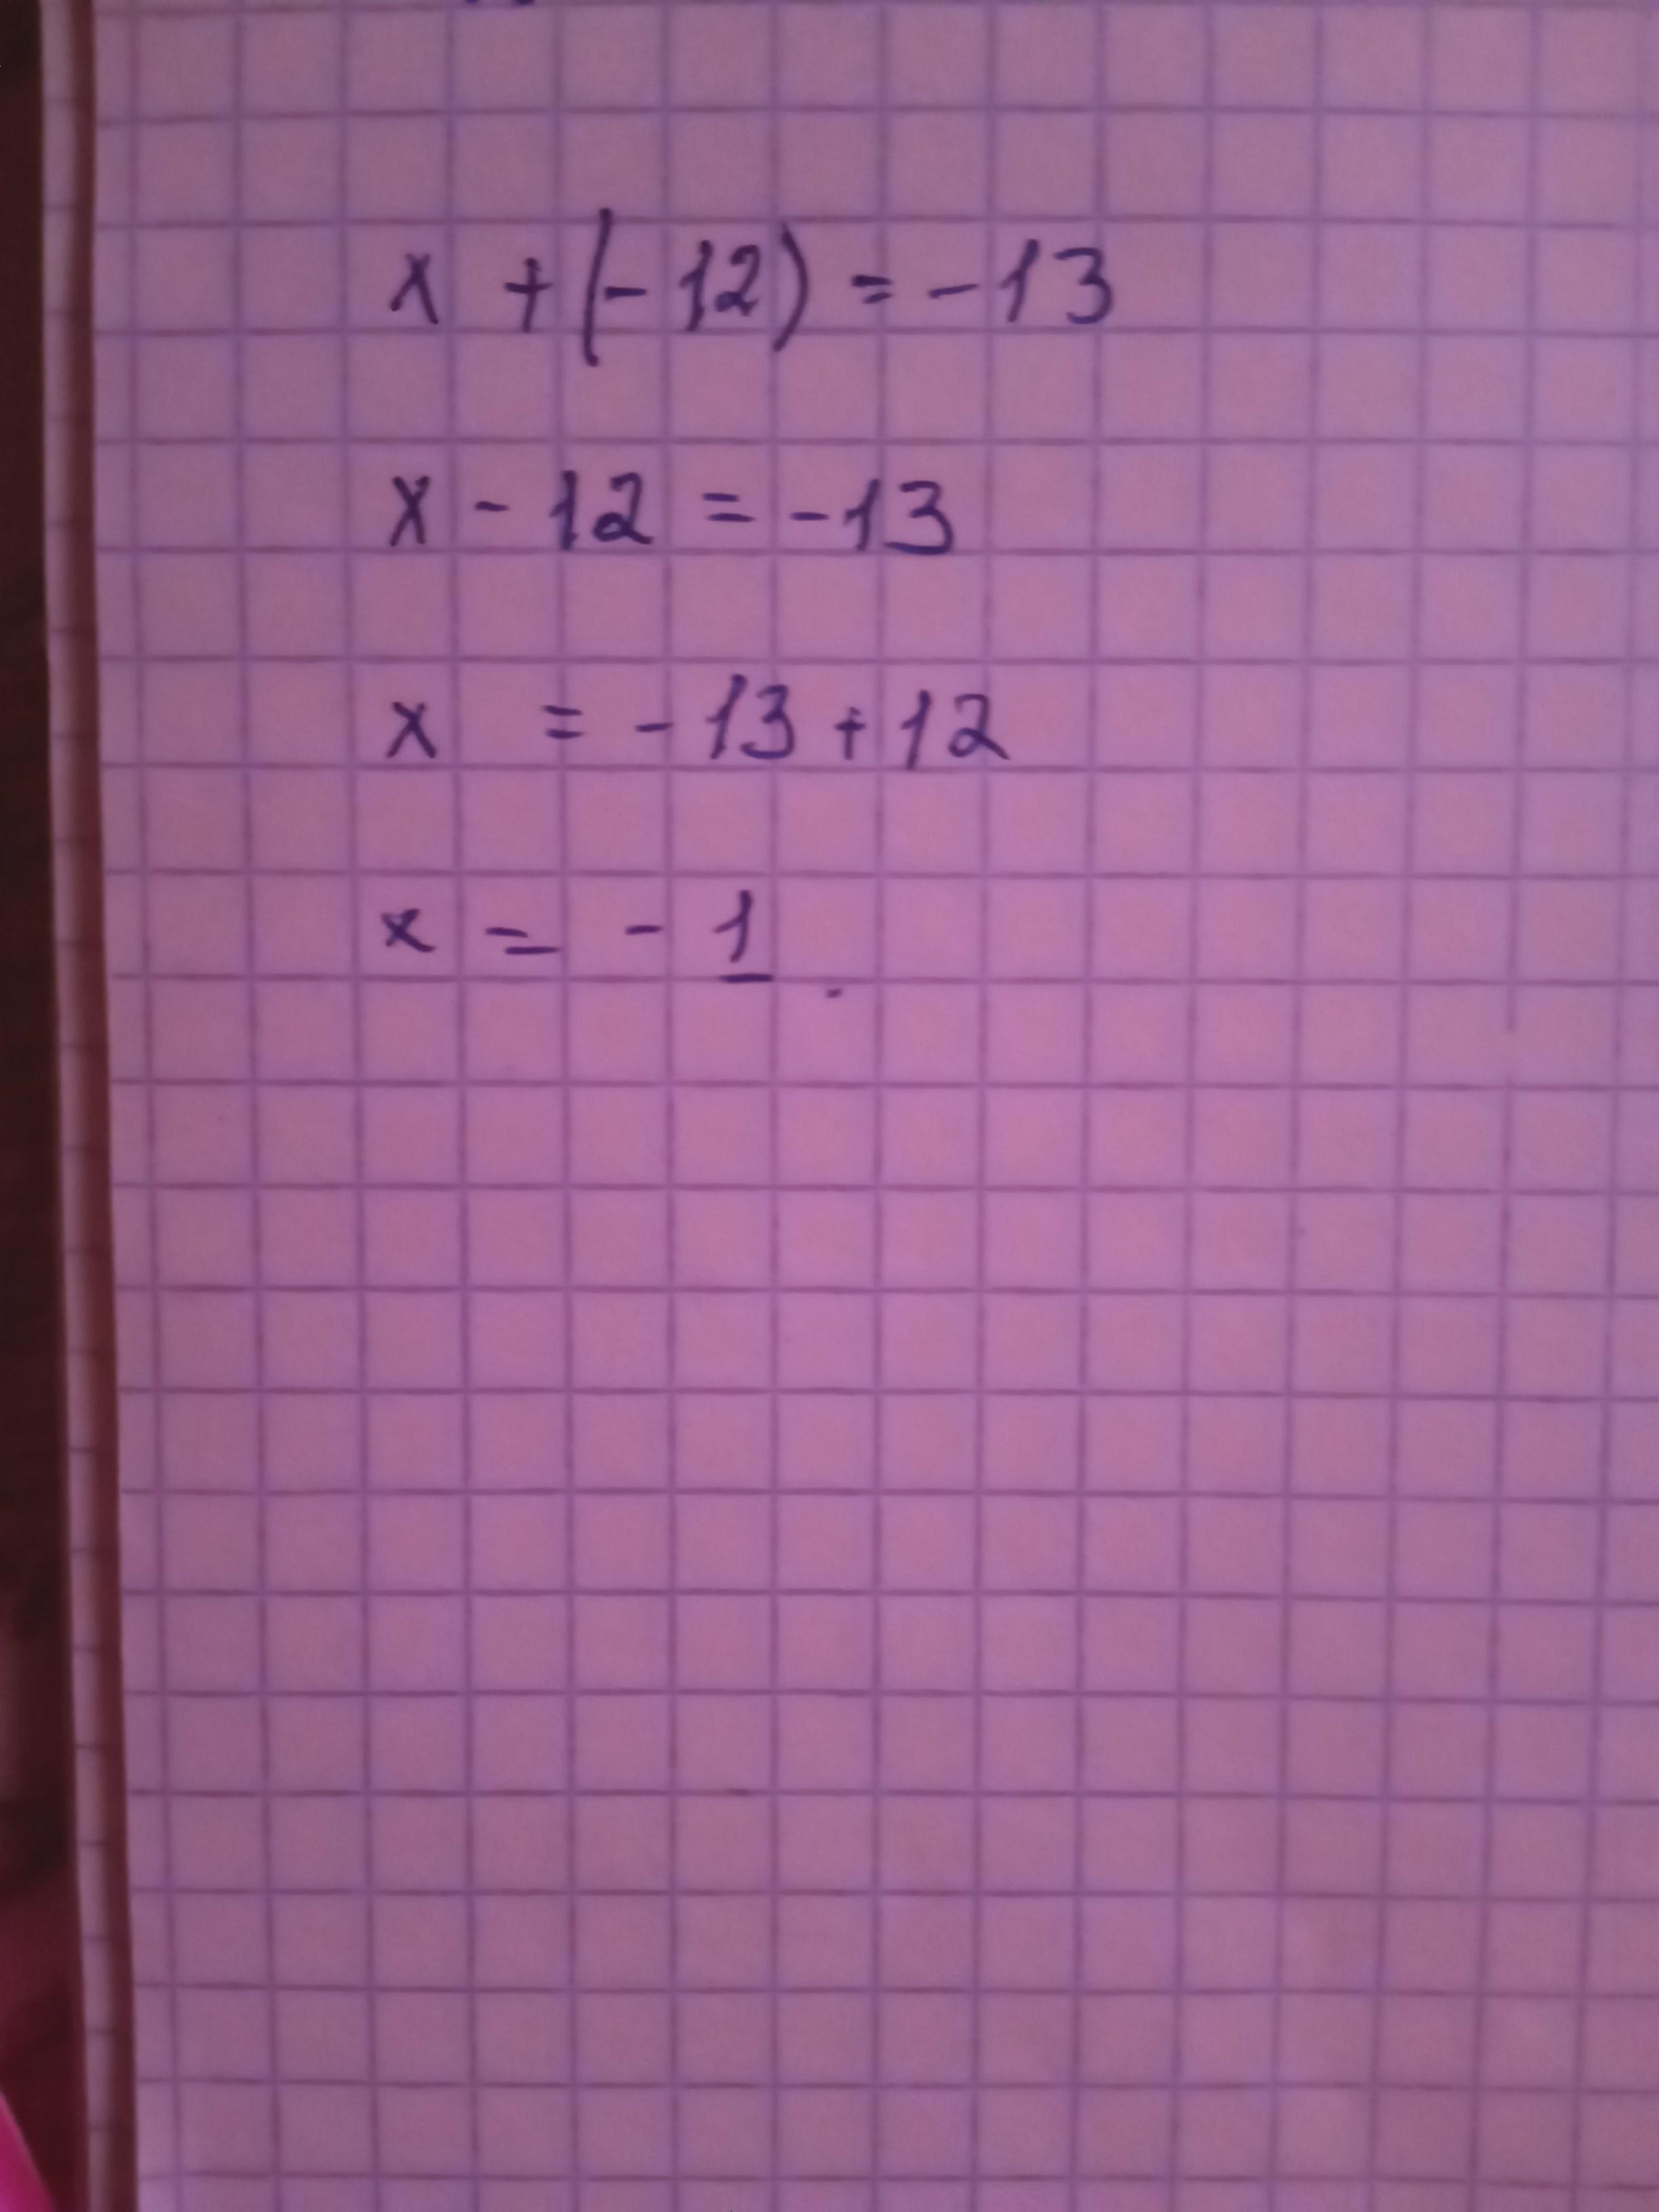 x + (-12) = -13
x - 12 = -13
x = -13 + 12
x = -1.